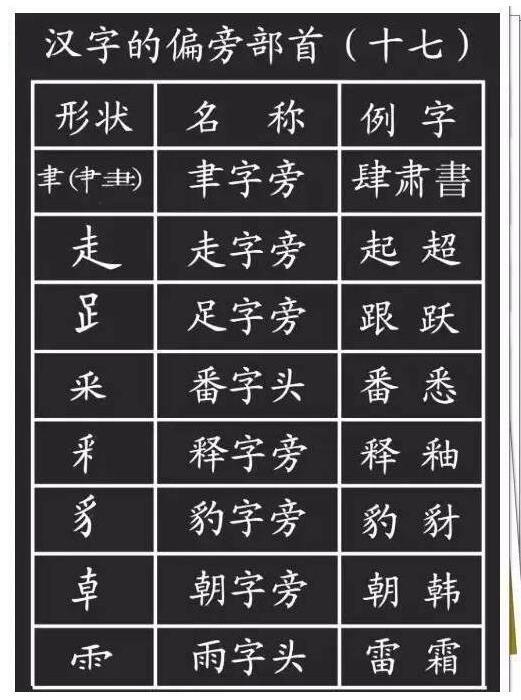 汉字的偏旁部首（十七）
形状 名称 例字
聿(肀⺻) 聿字旁 肆肃書
走 走字旁 起超
𧾷 足字旁 跟跃
釆 番字头 番悉
釆 释字旁 释釉
豸 豹字旁 豹豺
𠦝 朝字旁 朝韩
⻗ 雨字头 雷霜